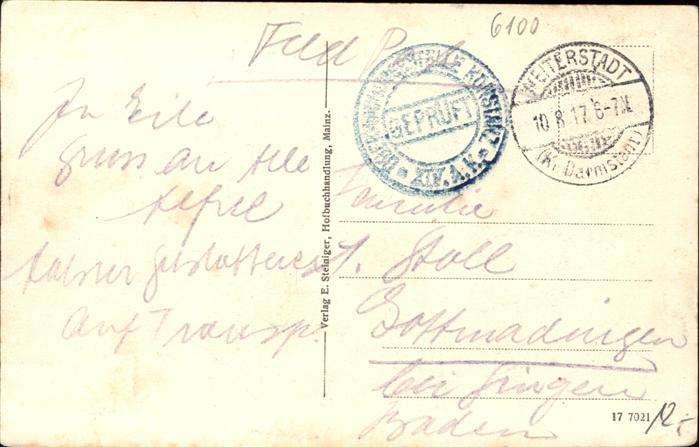 6100
Feld Post
WEITERSTADT
10.8.17.6-7N.
(Kr. Darmstadt)
KONSTANZ
GEPRÜFT
XIV. A.K.
In Eile
Gruss an Alle
Alfred
auf Transp.
Verlag E. Steiniger, Hofbuchhandlung, Mainz.
Familie
Stoll
Gottmadingen
bei Singen
Baden
17 7021
12.-